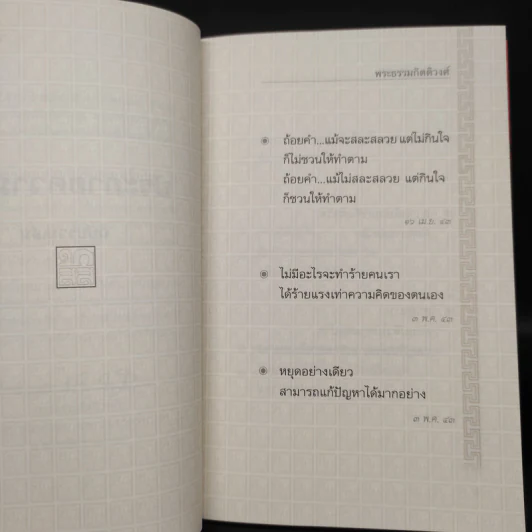 พระธรรมกิตติวงศ์
ถ้อยคำ...แม้จะสละสลวย แต่ไม่กินใจ
ก็ไม่ชวนให้ทำตาม
ถ้อยคำ...แม้ไม่สละสลวย แต่กินใจ
ก็ชวนให้ทำตาม
เม.ย. ๔๒
ไม่มีอะไรจะทำร้ายคนเรา
ได้ร้ายแรงเท่าความคิดของตนเอง
๓ พ.ค. ๔๓
หยุดอย่างเดียว
สามารถแก้ปัญหาได้มากอย่าง
๓ พ.ค. ๔๒